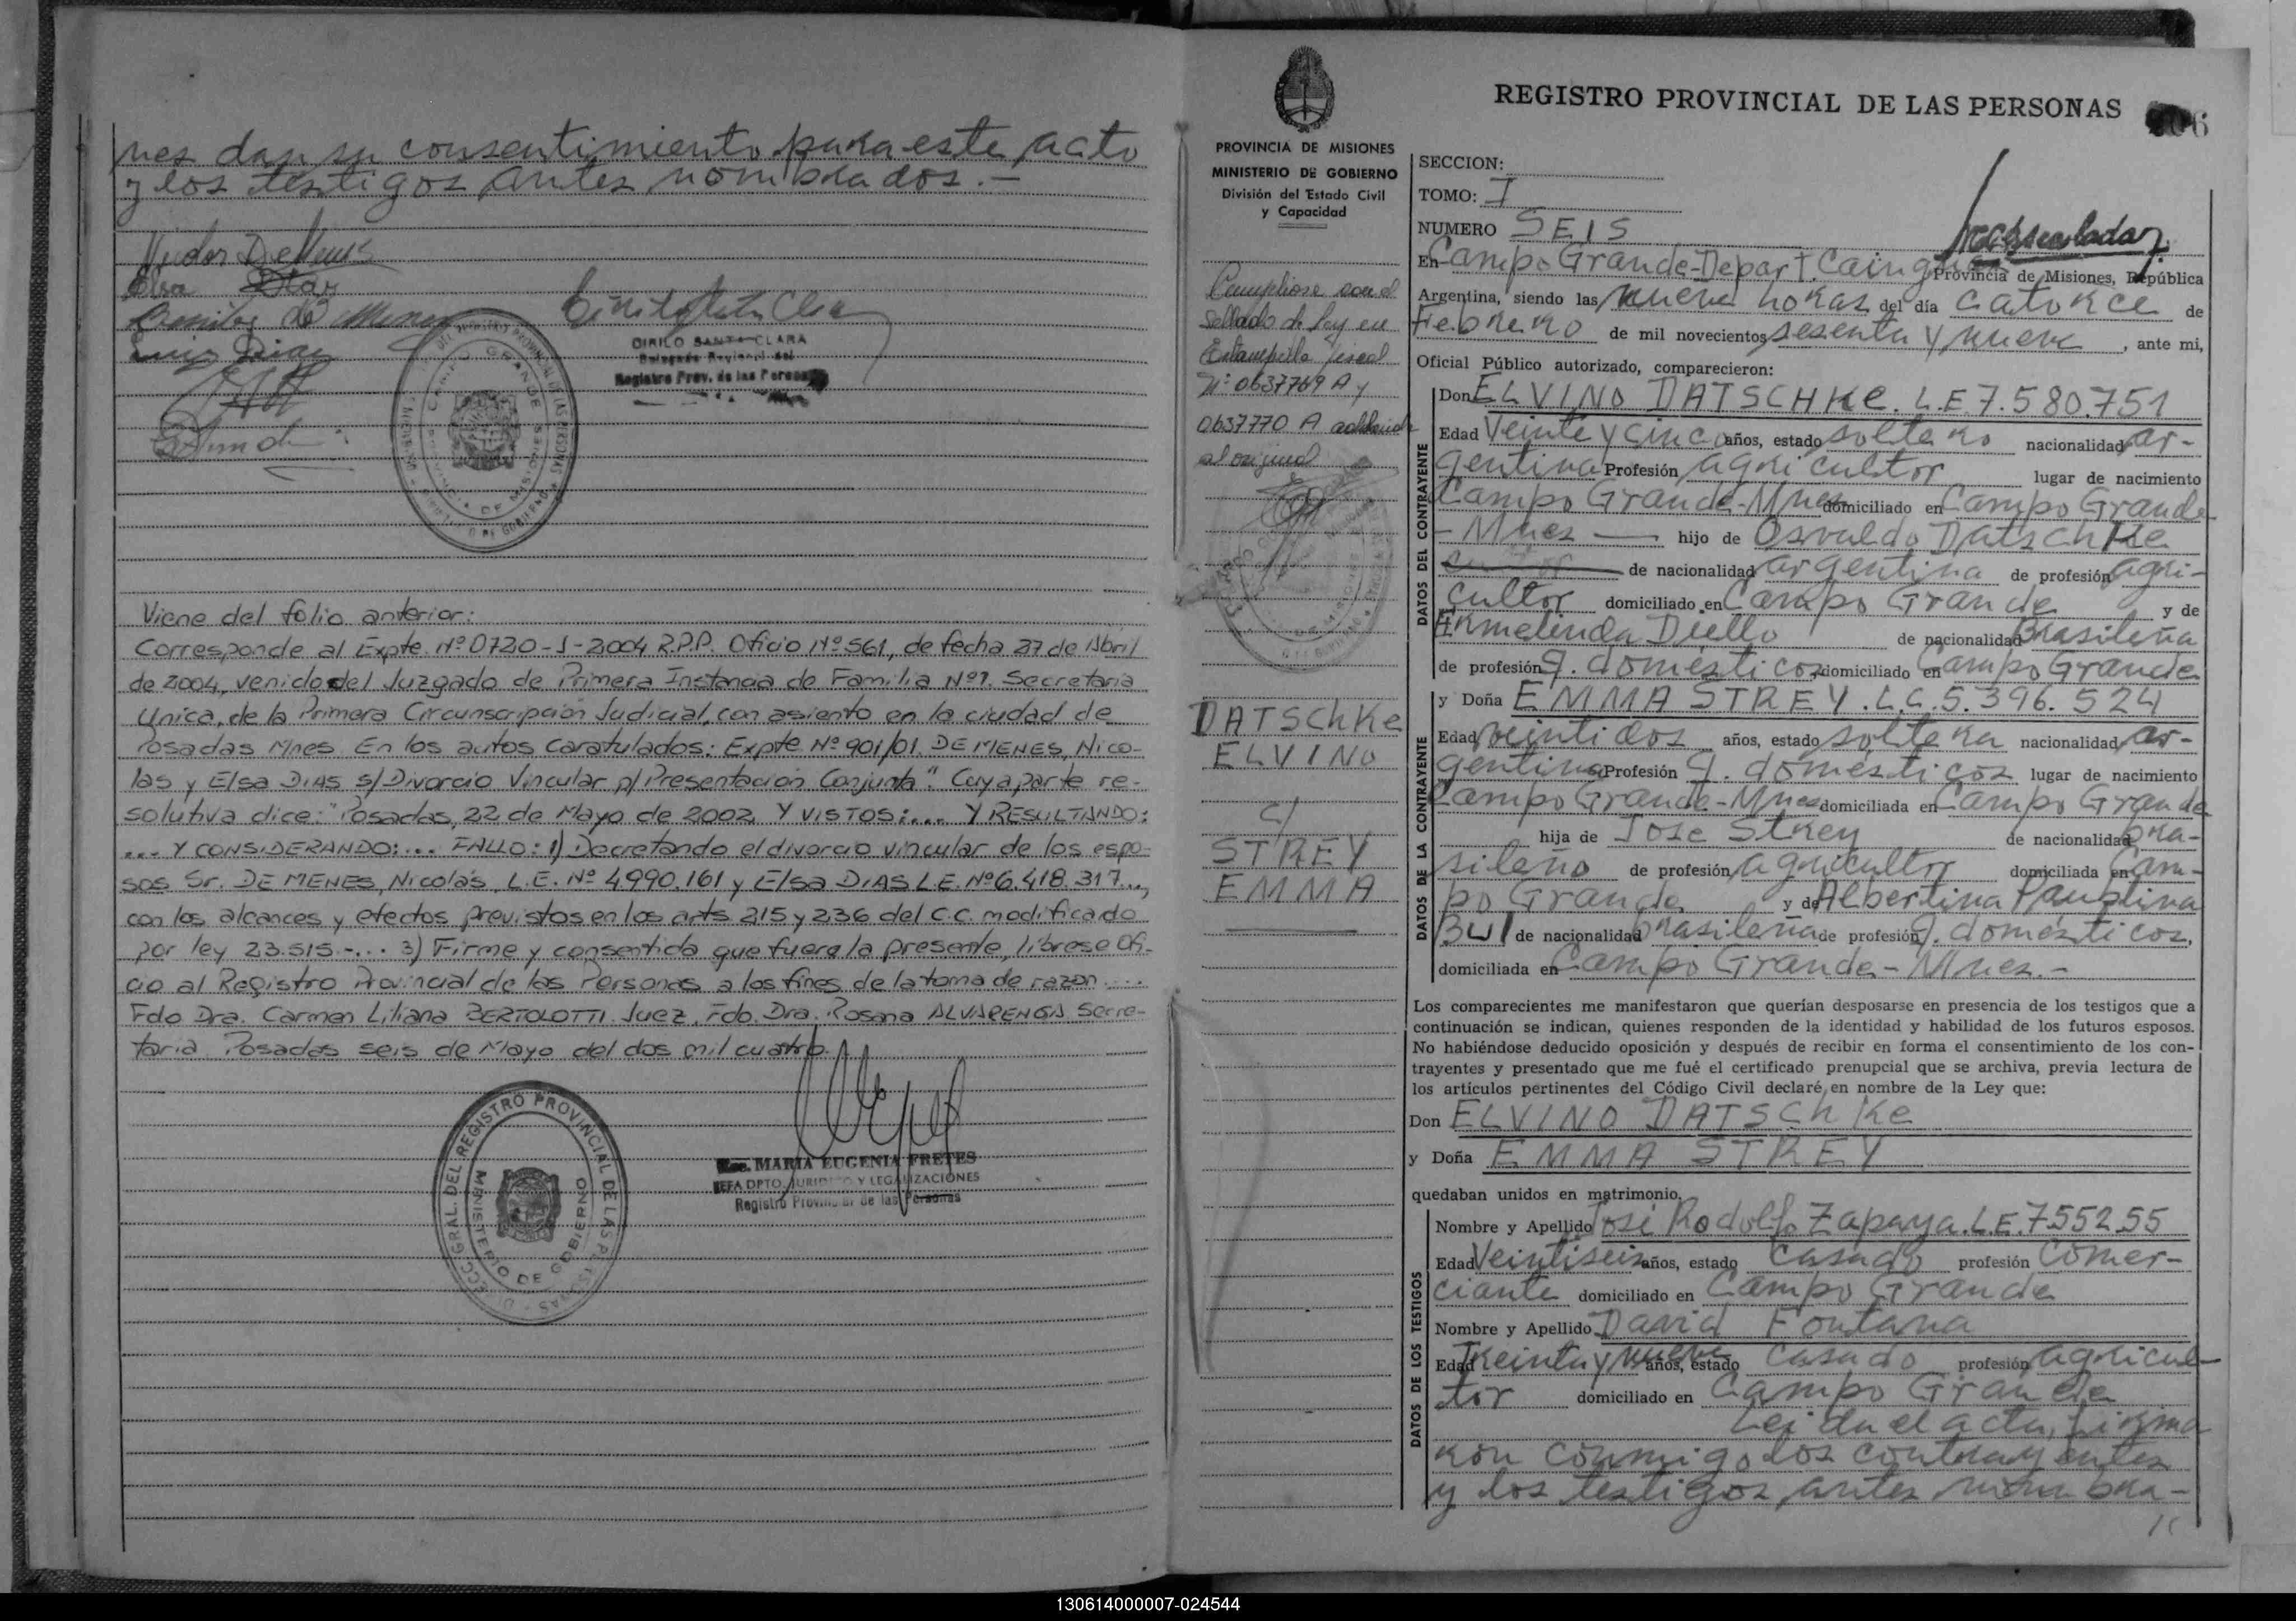 nes dan su consentimiento para este acto
y los testigos antes nombrados.-
Luiz Diaz
CIRILO SANTA CLARA
Delegado Regional del
Registro Prov. de las Personas
Viene del folio anterior:
Corresponde al Expte. Nº 0720-J-2004 R.P.P. Oficio Nº 561, de fecha 27 de Abril
de 2004, venido del Juzgado de Primera Instancia de Familia Nº 1. Secretaria
Unica, de la Primera Circunscripción Judicial, con asiento en la ciudad de
Posadas Mnes. En los autos caratulados: Expte Nº 901/01. DE MENES, Nico-
las y Elsa DIAS s/Divorcio Vincular p/Presentación Conjunta". Cuya parte re-
solutiva dice: "Posadas, 22 de Mayo de 2002 Y VISTOS:... Y RESULTANDO:
... Y CONSIDERANDO:... FALLO: 1) Decretando el divorcio vincular de los espo-
sos Sr. DE MENES, Nicolás, L.E. Nº 4.990.161 y Elsa DIAS L.E. Nº 6.418.317...,
con los alcances y efectos previstos en los arts 215 y 236 del C.C. modificado
por ley 23.515.-... 3) Firme y consentida que fuera la presente, librese Ofi-
cio al Registro Provincial de las Personas a los fines de la toma de razon....
Fdo Dra. Carmen Liliana BERTOLOTTI. Juez. Fdo. Dra. Rosana ALVARENGA Secre-
taria. Posadas seis de Mayo del dos mil cuatro.
DIRECC. GRAL. DEL REGISTRO PROVINCIAL DE LAS PERSONAS
MINISTERIO DE GOBIERNO
Esc. MARIA EUGENIA FRETES
JEFA DPTO. JURIDICO Y LEGALIZACIONES
Registro Provincial de las Personas
REGISTRO PROVINCIAL DE LAS PERSONAS
PROVINCIA DE MISIONES
MINISTERIO DE GOBIERNO
División del Estado Civil
y Capacidad
Sellado de ley en
Estampilla fiscal
Nº 0637769 A y
0637770 A adherida
al original
DATSCHKe
ELVINO
c/
STREY
EMMA
SECCION:
TOMO: I
NUMERO SEIS
En Campo Grande-Depart. Cainguás Provincia de Misiones, República
Argentina, siendo las nueve horas del día catorce de
Febrero de mil novecientos sesenta y nueve, ante mi,
Oficial Público autorizado, comparecieron:
DATOS DEL CONTRAYENTE
Don ELVINO DATSCHKe. L.E 7.580.751
Edad Veinte y cinco años, estado soltero nacionalidad ar-
gentina Profesión agricultor lugar de nacimiento
Campo Grande-Mnes domiciliado en Campo Grande
-Mnes- hijo de Osvaldo Datschke
de nacionalidad argentina de profesión agri-
cultor domiciliado en Campo Grande y de
Ermelinda Diello de nacionalidad Brasileña
de profesión q. domésticos domiciliado en Campo Grande
DATOS DE LA CONTRAYENTE
y Doña EMMA STREY. L.C. 5.396.524
Edad veintidos años, estado soltera nacionalidad ar-
gentina Profesión q. domésticos lugar de nacimiento
Campo Grande-Mnes domiciliada en Campo Grande
hija de Jose Strey de nacionalidad bra-
sileño de profesión agricultor domiciliada en Cam-
po Grande y de Albertina Paublina
Bul de nacionalidad brasileña de profesión q. domésticos,
domiciliada en Campo Grande-Mnes.-
Los comparecientes me manifestaron que querían desposarse en presencia de los testigos que a
continuación se indican, quienes responden de la identidad y habilidad de los futuros esposos.
No habiéndose deducido oposición y después de recibir en forma el consentimiento de los con-
trayentes y presentado que me fué el certificado prenupcial que se archiva, previa lectura de
los artículos pertinentes del Código Civil declaré, en nombre de la Ley que:
Don ELVINO DATSCHKe
y Doña EMMA STREY
quedaban unidos en matrimonio.
DATOS DE LOS TESTIGOS
Nombre y Apellido José Rodolfo Zapaya. L.E. 7.552.55
Edad Veintiseis años, estado casado profesión comer-
ciante domiciliado en Campo Grande
Nombre y Apellido David Fontana
Edad Treinta y nueve años, estado casado profesión agricul-
tor domiciliado en Campo Grande
Leida el acta, firma
ron conmigo los contrayentes
y los testigos antes nombra-
130614000007-024544